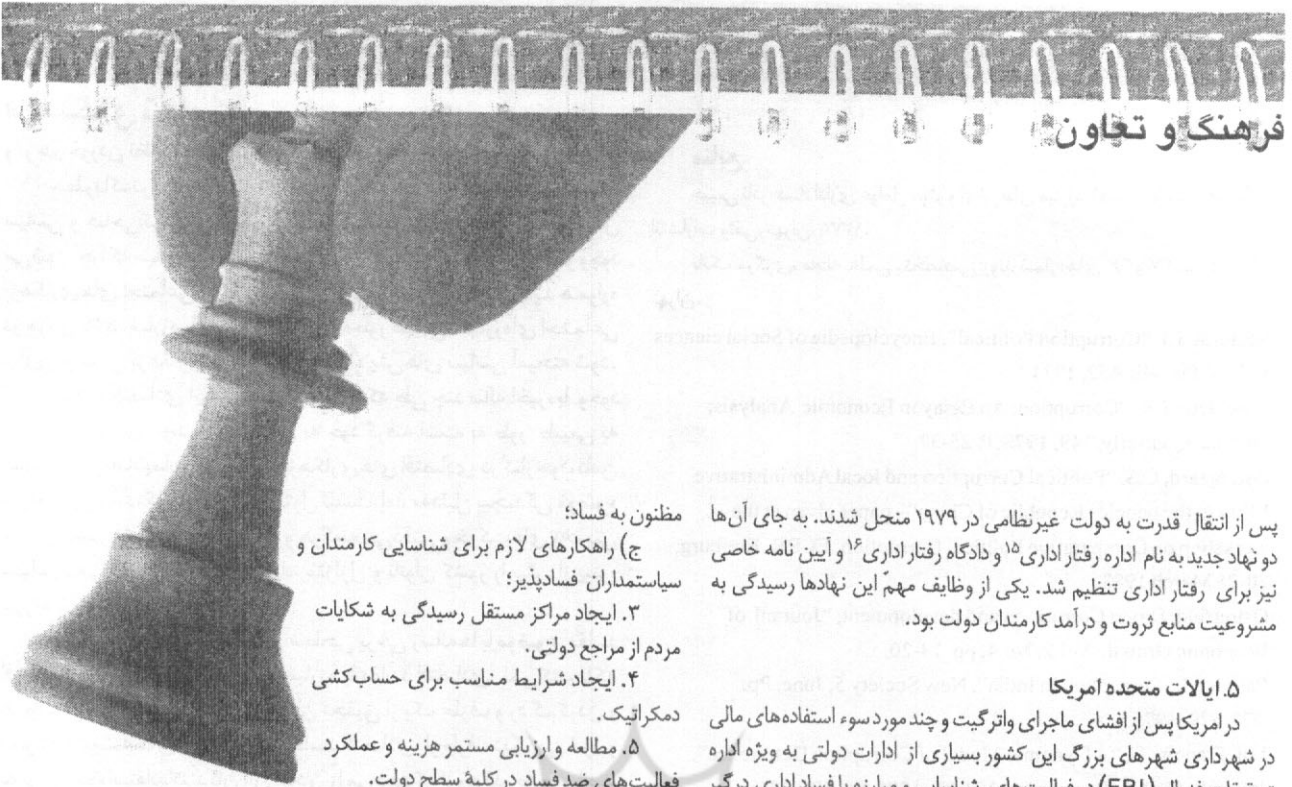 فرهنگ و تعاون
پس از انتقال قدرت به دولت غیرنظامی در ۱۹۷۹ منحل شدند. به جای آن‌ها
دو نهاد جدید به نام اداره رفتار اداری۱۵ و دادگاه رفتار اداری۱۶ و آیین نامه خاصی
نیز برای رفتار اداری تنظیم شد. یکی از وظایف مهم این نهادها رسیدگی به
مشروعیت منابع ثروت و درآمد کارمندان دولت بود.
۵. ایالات متحده امریکا
در امریکا پس از افشای ماجرای واترگیت و چند مورد سوء استفاده‌های مالی
در شهرداری شهرهای بزرگ این کشور بسیاری از ادارات دولتی به ویژه اداره
تحقیقات فدرال (FBI) در فعالیت‌های شناسایی و مبارزه با فساد اداری درگیر
مظنون به فساد؛
ج) راهکارهای لازم برای شناسایی کارمندان و
سیاستمداران فسادپذیر؛
۳. ایجاد مراکز مستقل رسیدگی به شکایات
مردم از مراجع دولتی.
۴. ایجاد شرایط مناسب برای حساب‌کشی
دمکراتیک.
۵. مطالعه و ارزیابی مستمر هزینه و عملکرد
فعالیت‌های ضد فساد در کلیهٔ سطح دولت.